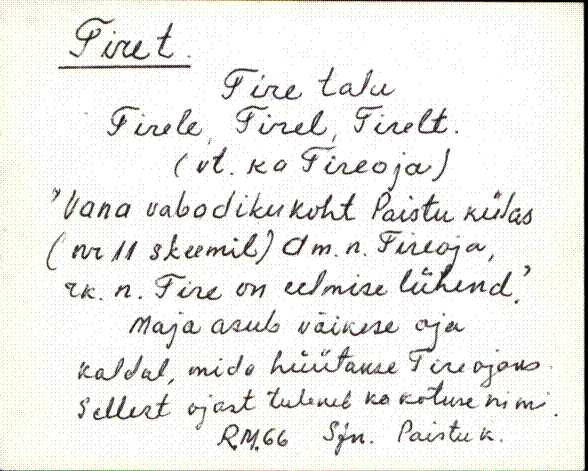 Tiret.
Tire talu
Tirele, Tirel, Tirelt.
(vt. ka Tireoja)
"Vana vabadikukoht Paistu külas
(nr 11 skeemil) Am. n. Tireoja,
rk. n. Tire on eelmise lühend."
Maja asub väikese oja
kaldal, mida hüütakse Tireojaks.
Sellest ojast tuleneb ka kotuse nimi.
R.M.66 Sjn. Paistu k.